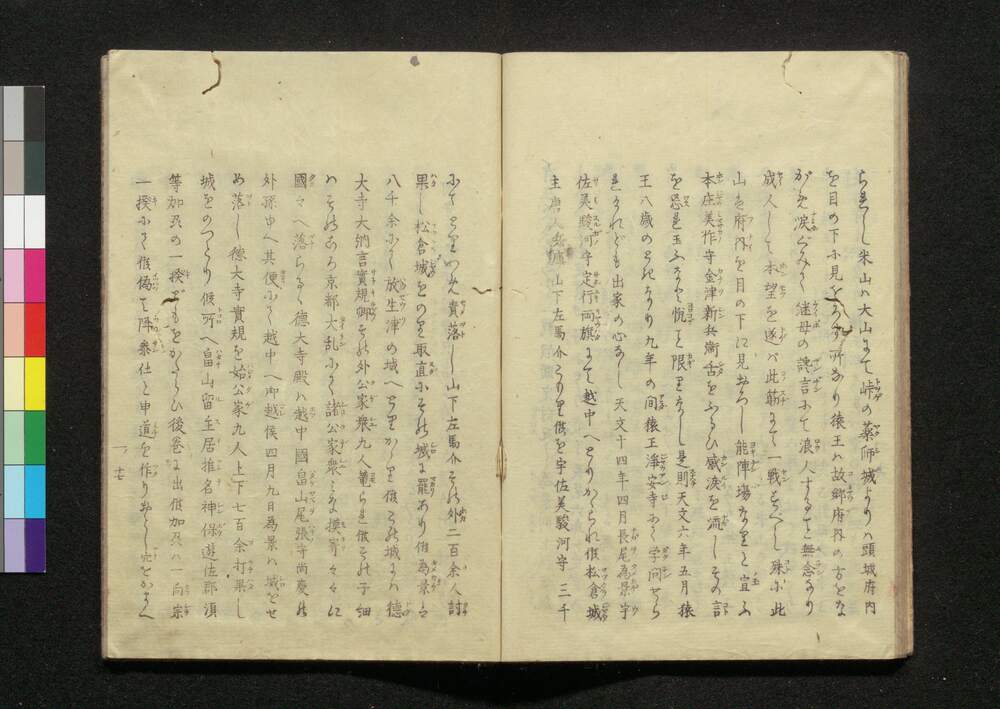 られし米山ハ大山にて峠の薬師城よりハ頭城府内
を目の下に見をろす所なり猿王ハ故郷府内の方をな
がめ涙ぐみて継母の讒言にて浪人する事無念なり
成人して本望を遂バ此筋にて一戦すべし殊に此
山ハ府内を目の下に見おろし能陣場なりと宣ふ
本庄美作守金津新兵衛舌をふるひ感涙を流しその記
を忍玉ふなと悦と限りなし是則天文六年五月猿
王八歳のときなり九年の間猿王浄安寺にて学問せら
れけれども出家の心なし天文十四年四月長尾為景宇
佐美駿河守定行両旗にて越中へとりかけられ候松倉城
主唐人兵庫山下左馬介こもり候を宇佐美駿河守三千
にてとりつめ責落し山下左馬介その外二百余人討
果し松倉城をのり取直にその城に罷あり候為景ハ
八千余にて放生津の城へとりかけ候その城にハ徳
大寺大納言實規卿その外公家衆九人籠られ候その子細
ハそのころ京都大乱にて諸公家衆ミな摸寄々々に
國々へ落ちらる徳大寺殿ハ越中國畠山尾張守尚慶の
外孫ゆへ其便にて越中へ御越候四月九日為景ハ城をせ
め落し徳大寺實規を始公家九人上下七百余打果し
城をのつとり候所へ畠山留主居椎名神保遊佐郡須
等加賀の一揆どもをかたらひ後巻に出候加賀ハ一向宗
一揆にて候偽て降参仕と申道を作りおとし穴をかまへ